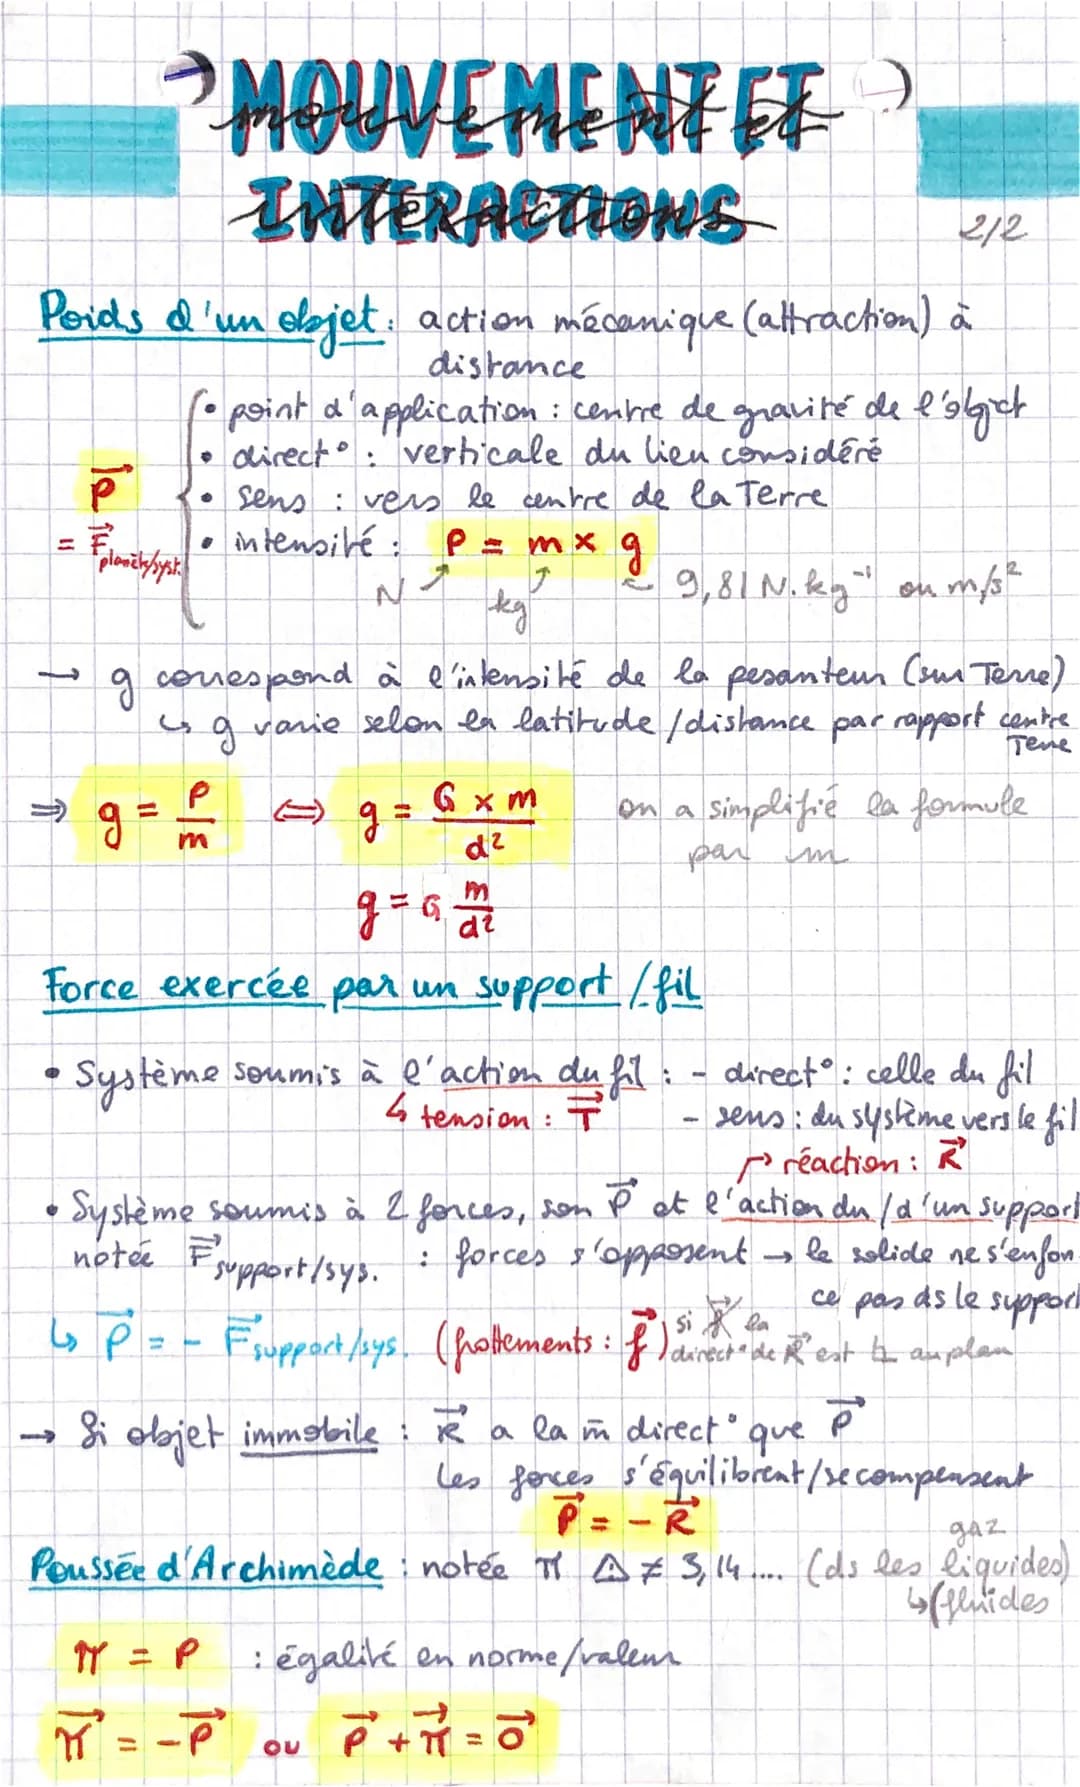 MOUVEMENT ET
mouvement et
INTERACTIONS
interactions
2/2
Poids d'un objet : action mécanique (attraction) à
distance
• point d'application : centre de gravité de l'objet
• direct° : verticale du lieu considéré
• sens : vers le centre de la Terre
• intensité : P = m × g
P⃗
= F⃗ planète/syst.
N kg 9,81 N.kg⁻¹ ou m/s²
→ g correspond à l'intensité de la pesanteur (sur Terre)
↳ g varie selon la latitude / distance par rapport centre
Terre
⇒ g = P/m ⇔ g = G × m / d² on a simplifié la formule
par m
g = G m/d²
Force exercée par un support / fil
• Système soumis à l'action du fil : - direct° : celle du fil
↳ tension : T⃗ - sens : du système vers le fil
↱ réaction : R⃗
• Système soumis à 2 forces, son P⃗ et l'action du / d'un support
notée F⃗ support/sys. : forces s'opposent → le solide ne s'enfon
ce pas ds le support
↳ P⃗ = - F⃗ support/sys. (frottements : f⃗) si la
direct° de R⃗ est ⊥ au plan
→ Si objet immobile : R⃗ a la m̄ direct° que P⃗
les forces s'équilibrent/se compensent
P⃗ = - R⃗
gaz
Poussée d'Archimède : notée π ⚠ ≠ 3,14.... (ds les liquides)
↳ (fluides
π = P : égalité en norme/valeur
π⃗ = -P⃗ ou P⃗ + π⃗ = 0⃗